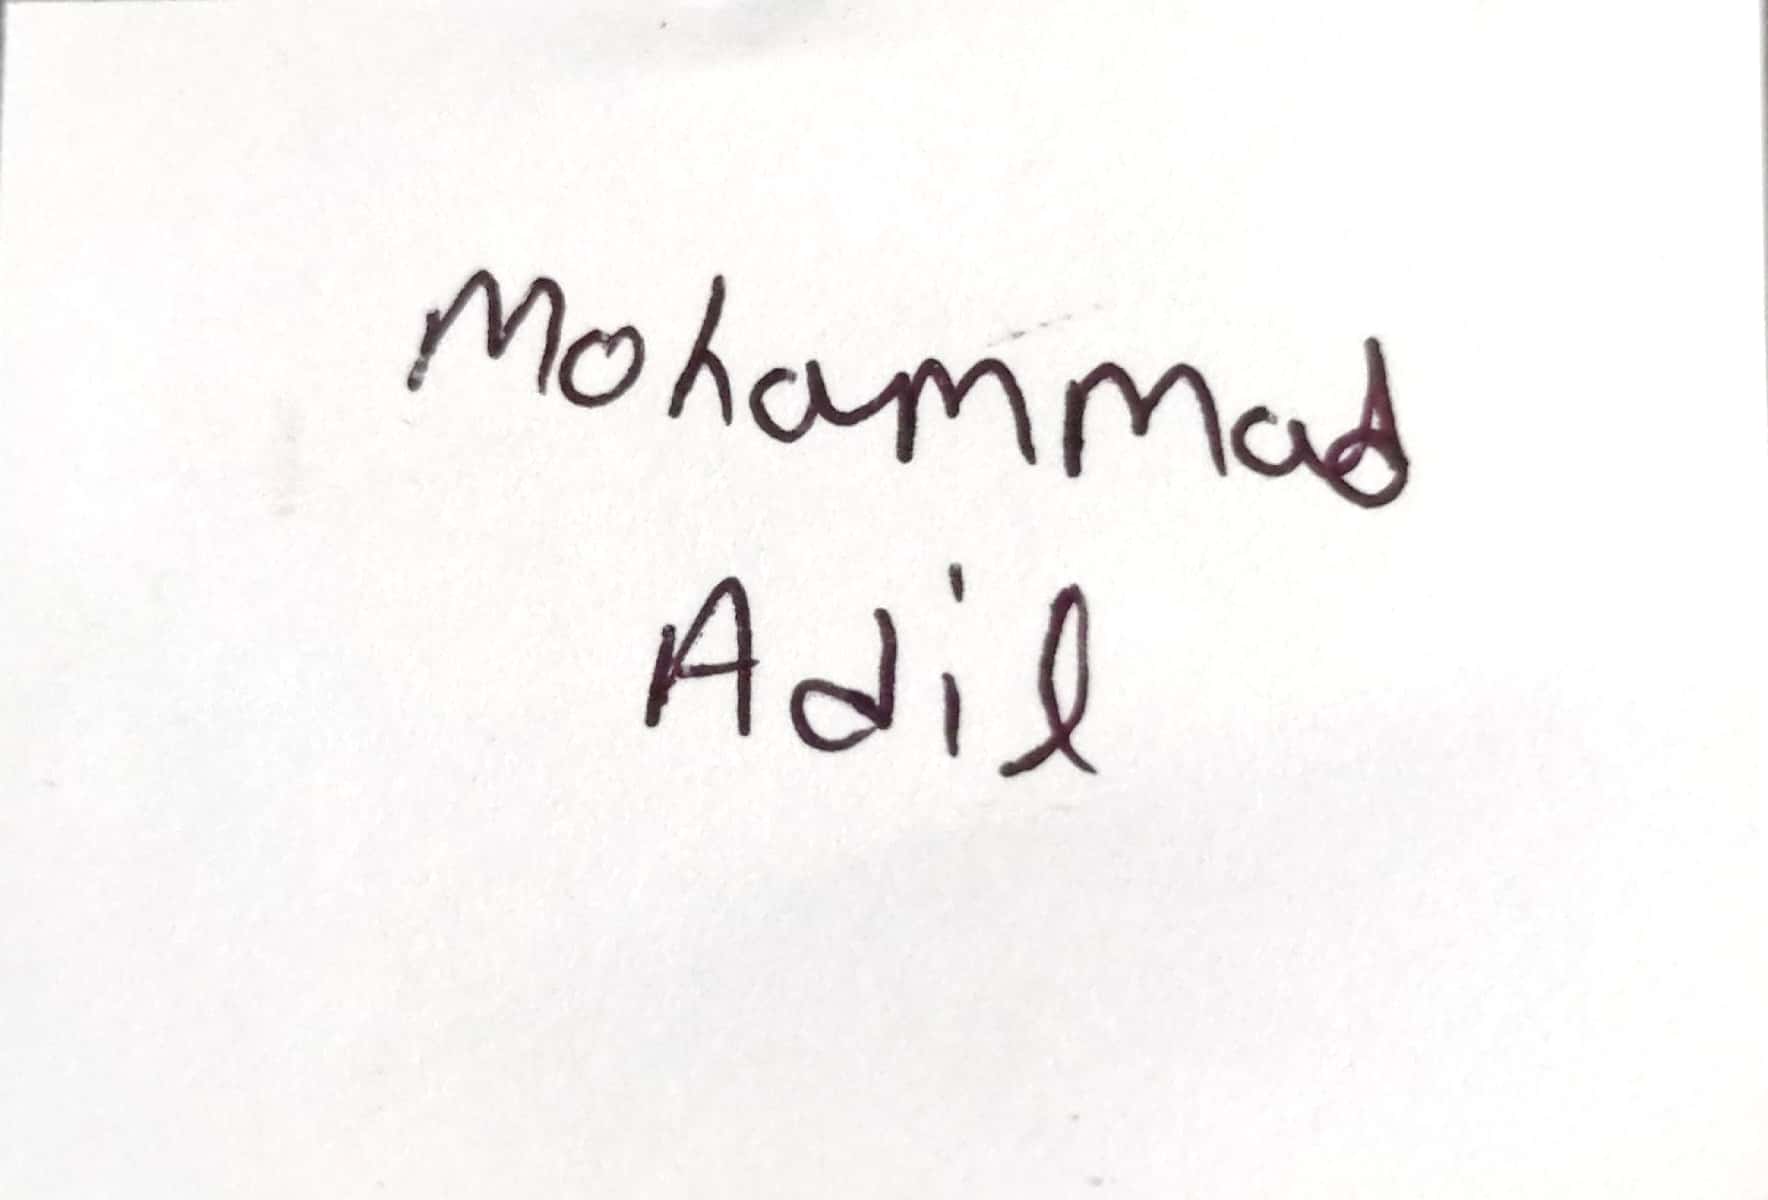 Mohammad
Adil